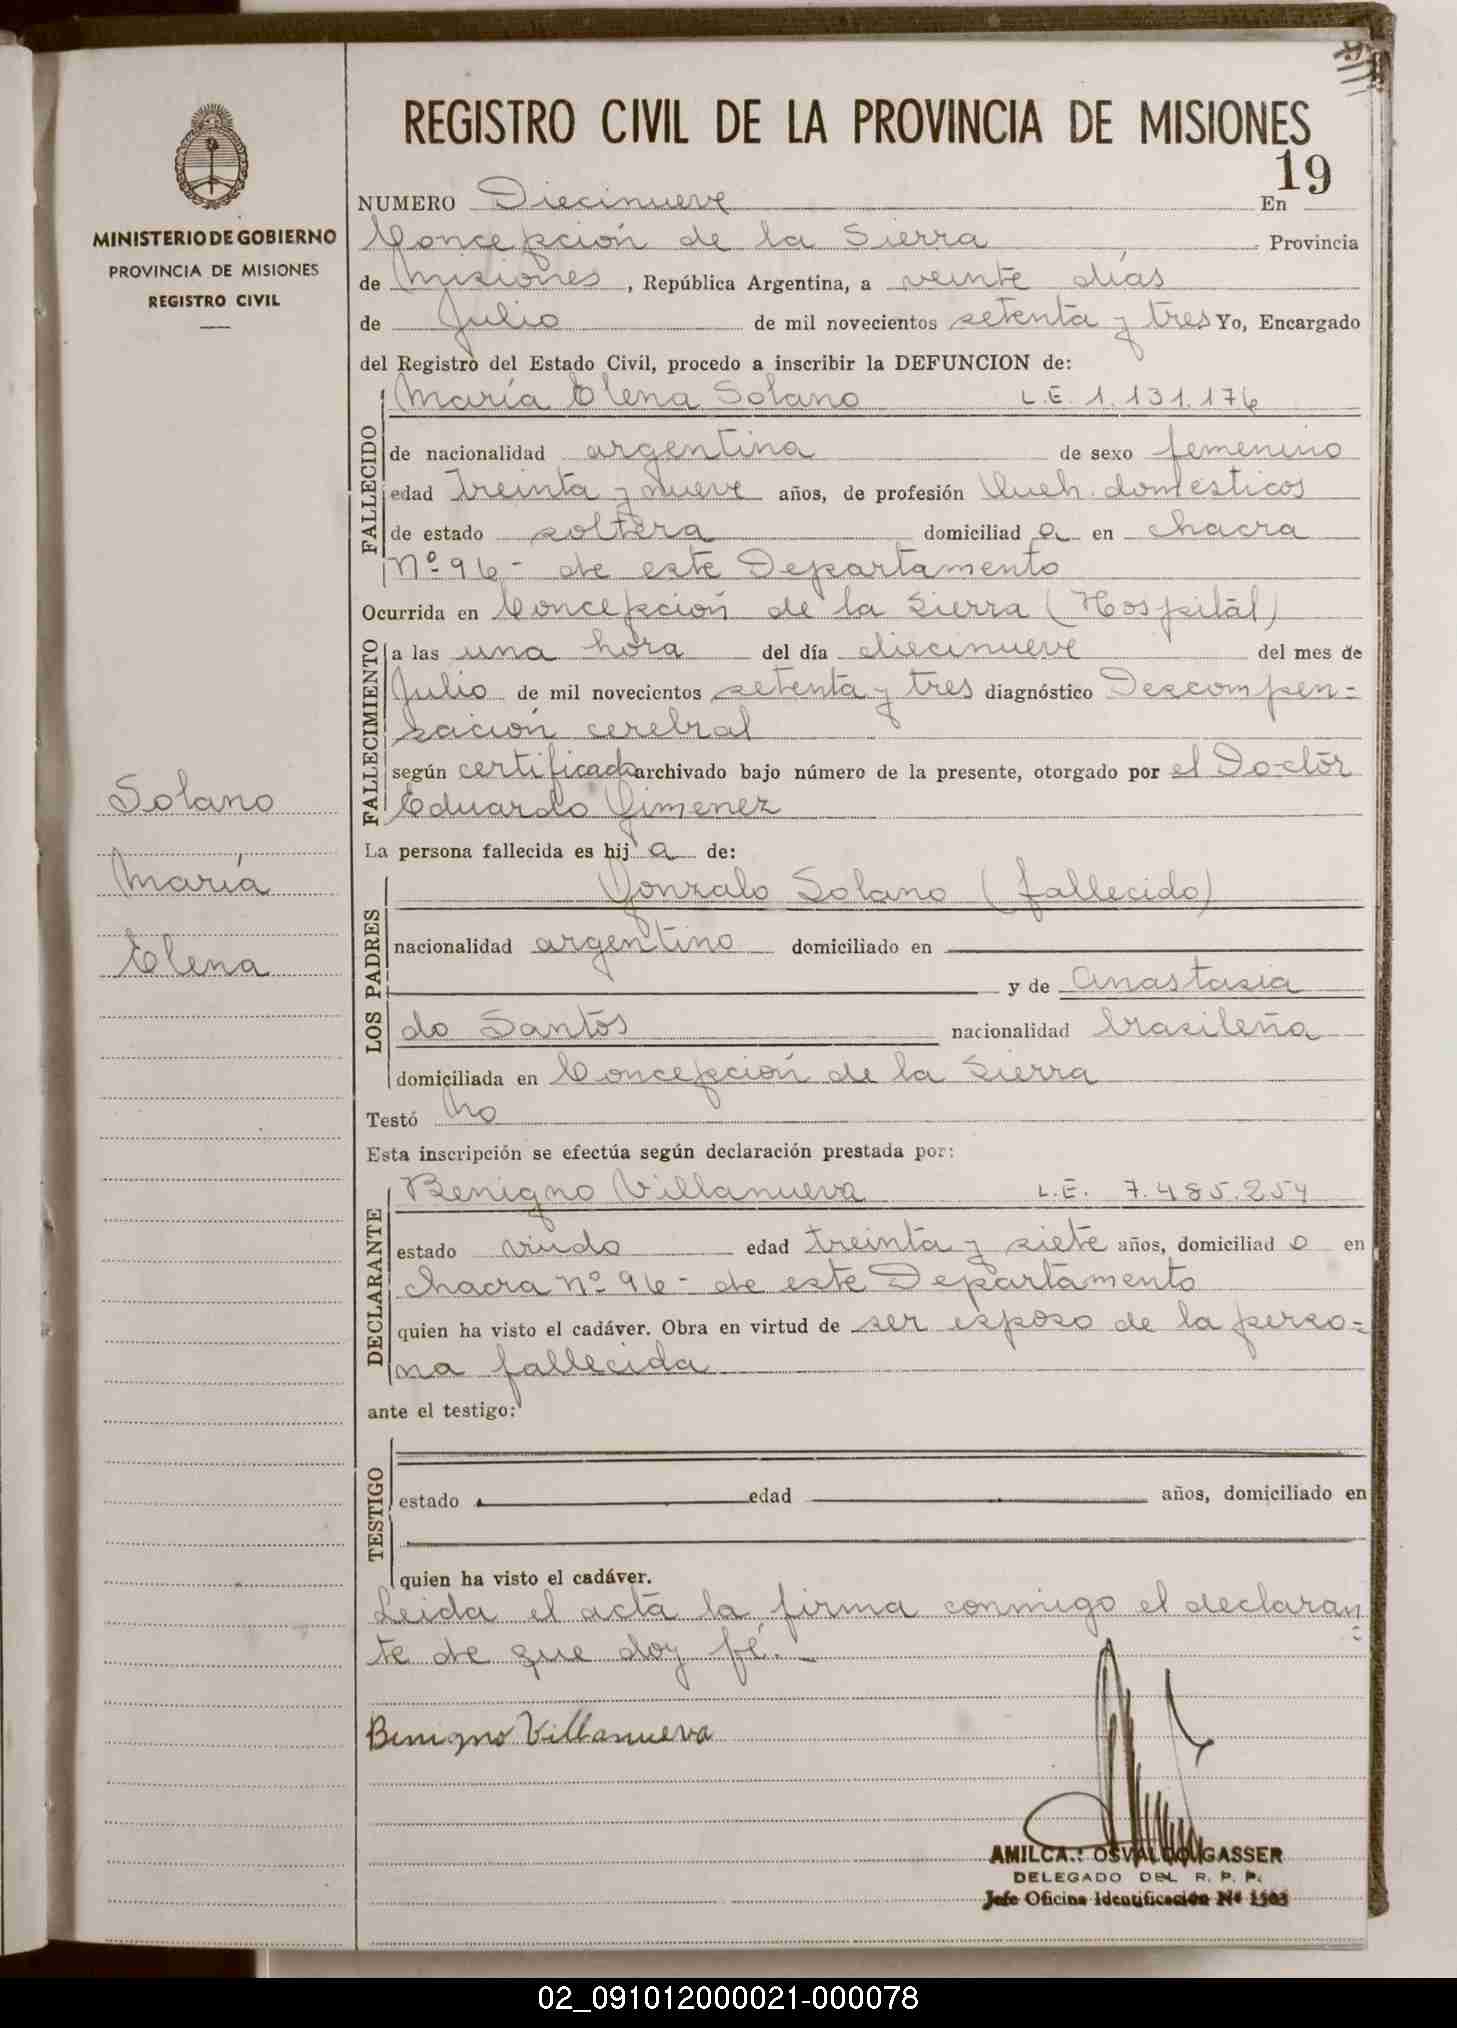 REGISTRO CIVIL DE LA PROVINCIA DE MISIONES
19
MINISTERIO DE GOBIERNO
PROVINCIA DE MISIONES
REGISTRO CIVIL
NUMERO Diecinueve En
Concepción de la Sierra Provincia
de Misiones, República Argentina, a veinte días
de Julio de mil novecientos setenta y tres Yo, Encargado
del Registro del Estado Civil, procedo a inscribir la DEFUNCION de:
FALLECIDO
María Elena Solano L.E. 1.131.176
de nacionalidad argentina de sexo femenino
edad treinta y nueve años, de profesión Queh. domesticos
de estado soltera domiciliad a en chacra
Nº 96- de este Departamento
Ocurrida en Concepción de la Sierra (Hospital)
FALLECIMIENTO
a las una hora del día diecinueve del mes de
Julio de mil novecientos setenta y tres diagnóstico Descompen=
sación cerebral
según certificado archivado bajo número de la presente, otorgado por el Doctor
Eduardo Gimenez
La persona fallecida es hij a de:
LOS PADRES
Gonzalo Solano (fallecido)
nacionalidad argentino domiciliado en
y de Anastasia
do Santos nacionalidad brasileña
domiciliada en Concepción de la Sierra
Testó No
Esta inscripción se efectúa según declaración prestada por:
DECLARANTE
Benigno Villanueva L.E. 7.485.254
estado viudo edad treinta y siete años, domiciliad o en
chacra Nº 96- de este Departamento
quien ha visto el cadáver. Obra en virtud de ser esposo de la perso=
na fallecida
ante el testigo:
TESTIGO
estado edad años, domiciliado en
quien ha visto el cadáver.
Leida el acta la firma conmigo el declaran=
te de que doy fé.-
Solano
María
Elena
Benigno Villanueva
AMILCAR OSVALDO GASSER
DELEGADO DEL R. P. P.
Jefe Oficina Identificación Nº 1503
02_091012000021-000078